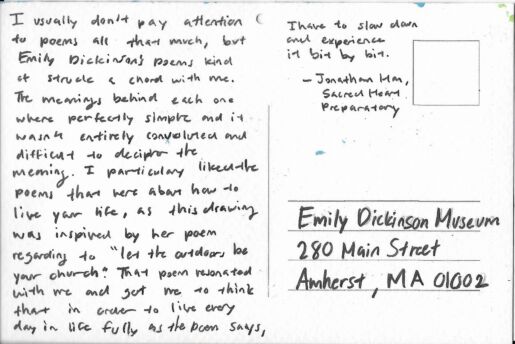 I usually don't pay attention
to poems all that much, but
Emily Dickinson's poems kind
of struck a chord with me.
The meanings behind each one
where perfectly simple and it
wasn't entirely convoluted and
difficult to decipher the
meaning. I particulary liked the
poems that were about how to
live your life, as this drawing
was inspired by her poem
regarding to "let the outdoors be
your church." That poem resonated
with me and got me to think
that in order to live every
day in life fully as the poem says,
I have to slow down
and experience
it bit by bit.
- Jonathan
Sacred Heart
Preparatory
Emily Dickinson Museum
280 Main Street
Amherst, MA 01002